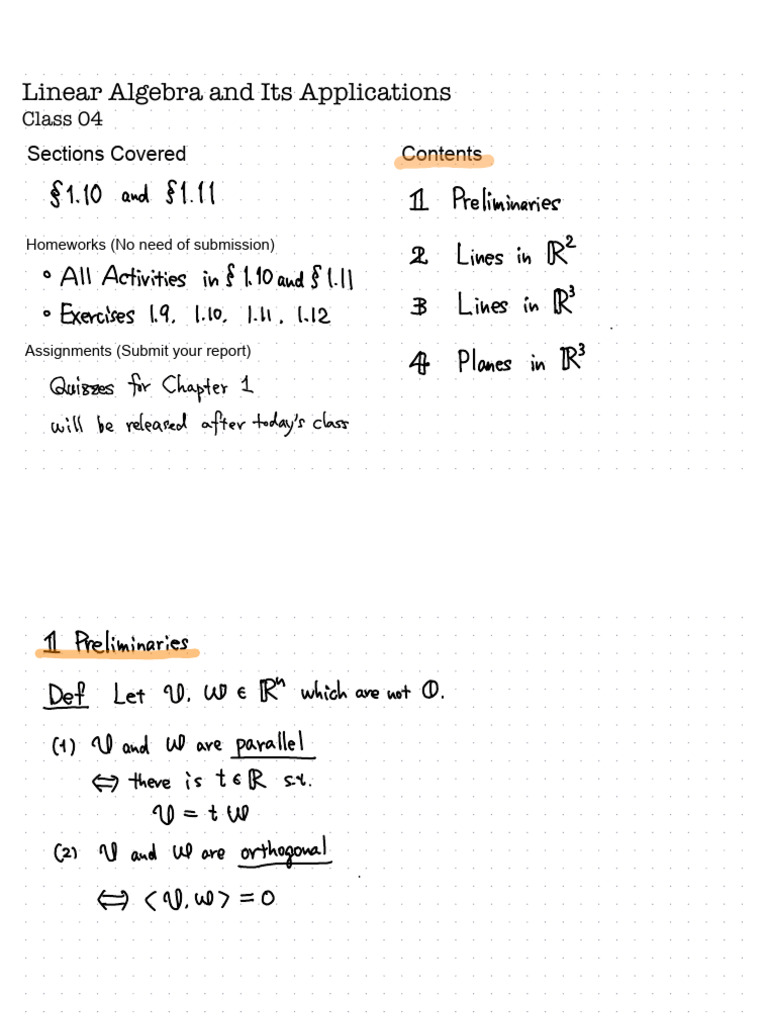 Linear Algebra and Its Applications
Class 04
Sections Covered
§1.10 and §1.11
Homeworks (No need of submission)
• All Activities in § 1.10 and § 1.11
• Exercises 1.9, 1.10, 1.11, 1.12
Assignments (Submit your report)
Quizzes for Chapter 1
will be released after today's class
Contents
1 Preliminaries
2 Lines in ℝ²
3 Lines in ℝ³
4 Planes in ℝ³
1 Preliminaries
Def Let 𝕧, 𝕨 ∈ ℝⁿ which are not 𝟘.
(1) 𝕧 and 𝕨 are parallel
⇔ there is t ∈ ℝ s.t.
𝕧 = t 𝕨
(2) 𝕧 and 𝕨 are orthogonal
⇔ ⟨𝕧, 𝕨⟩ = 0